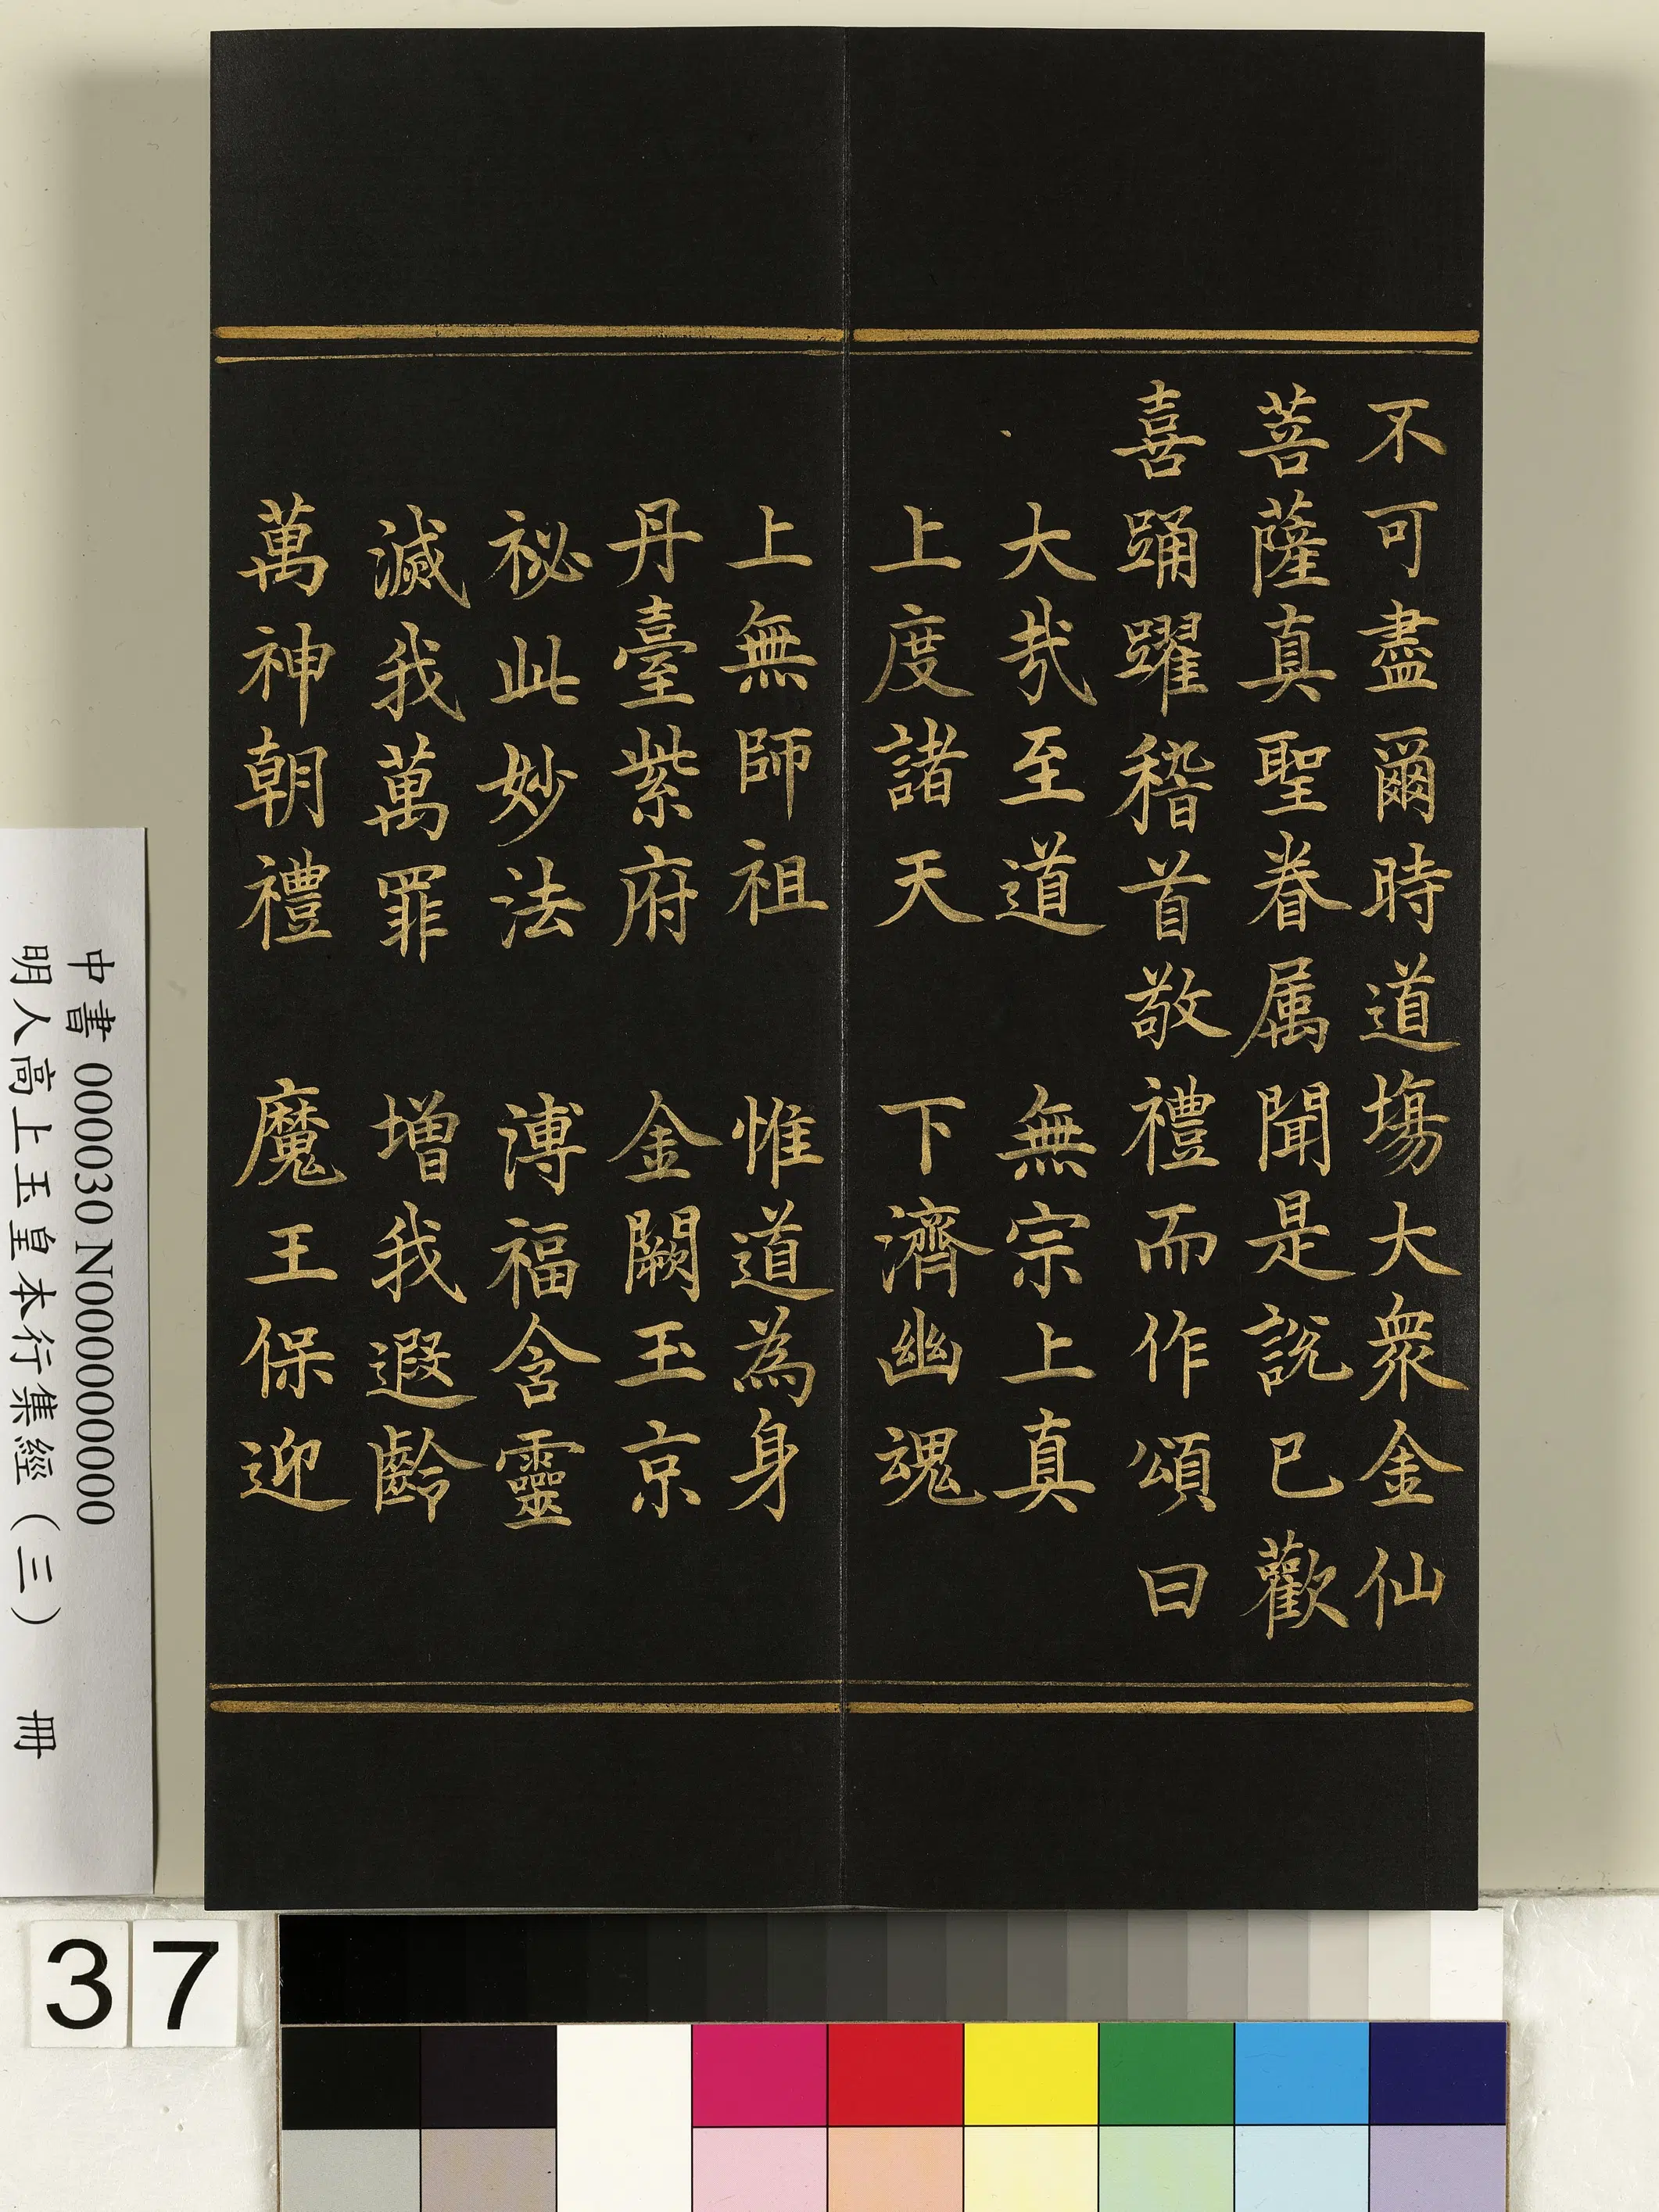 不可盡爾時道塲大衆金仙
菩薩真聖眷属聞是說已歡
喜踊躍稽首敬禮而作頌曰
大㢤至道　無宗上真
上度諸天　下濟幽魂
上無師祖　惟道為身
丹臺紫府　金闕玉京
祕此妙法　溥福含靈
滅我萬罪　增我遐齡
萬神朝禮　魔王保迎
中書 000030 N000000000
明人高上玉皇本行集經（三）　冊
37